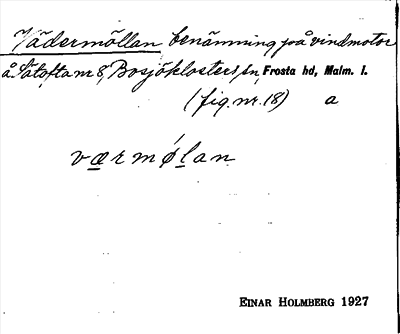 Vädermöllan benämning på vindmotor
å Sätofta nr 8, Bosjöklosters sn, Frosta hd, Malm. l.
(fig. nr. 18) a
værmølan
EINAR HOLMBERG 1927